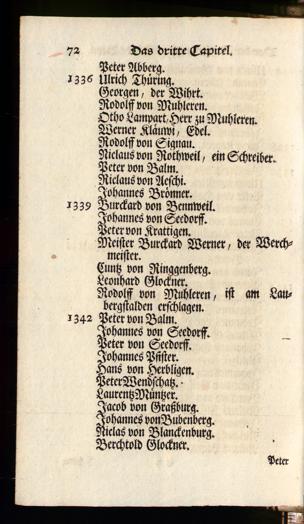 72 Das dritte Capitel.
Peter Abberg.
1336 Ulrich Thüring.
Georgen, der Wihrt.
Rodolff von Muhleren.
Otho Lampart, Herr zu Muhleren.
Werner Kläuwi, Edel.
Rodolff von Signau.
Niclaus von Rothweil, ein Schreiber.
Peter von Balm.
Niclaus von Aeschi.
Johannes Brönner.
1339 Burckard von Bennweil.
Johannes von Seedorff.
Peter von Krattigen.
Meister Burckard Werner, der Werch-
meister.
Cuntz von Ringgenberg.
Leonhard Glockner.
Rodolff von Muhleren, ist am Lau-
bergstalden erschlagen.
1342 Peter von Balm.
Johannes von Seedorff.
Peter von Seedorff.
Johannes Pfister.
Hans von Herbligen.
Peter Wendschatz.
Laurentz Müntzer.
Jacob von Graßburg.
Johannes von Bubenberg.
Niclas von Blanckenburg.
Berchtold Glockner.
Peter